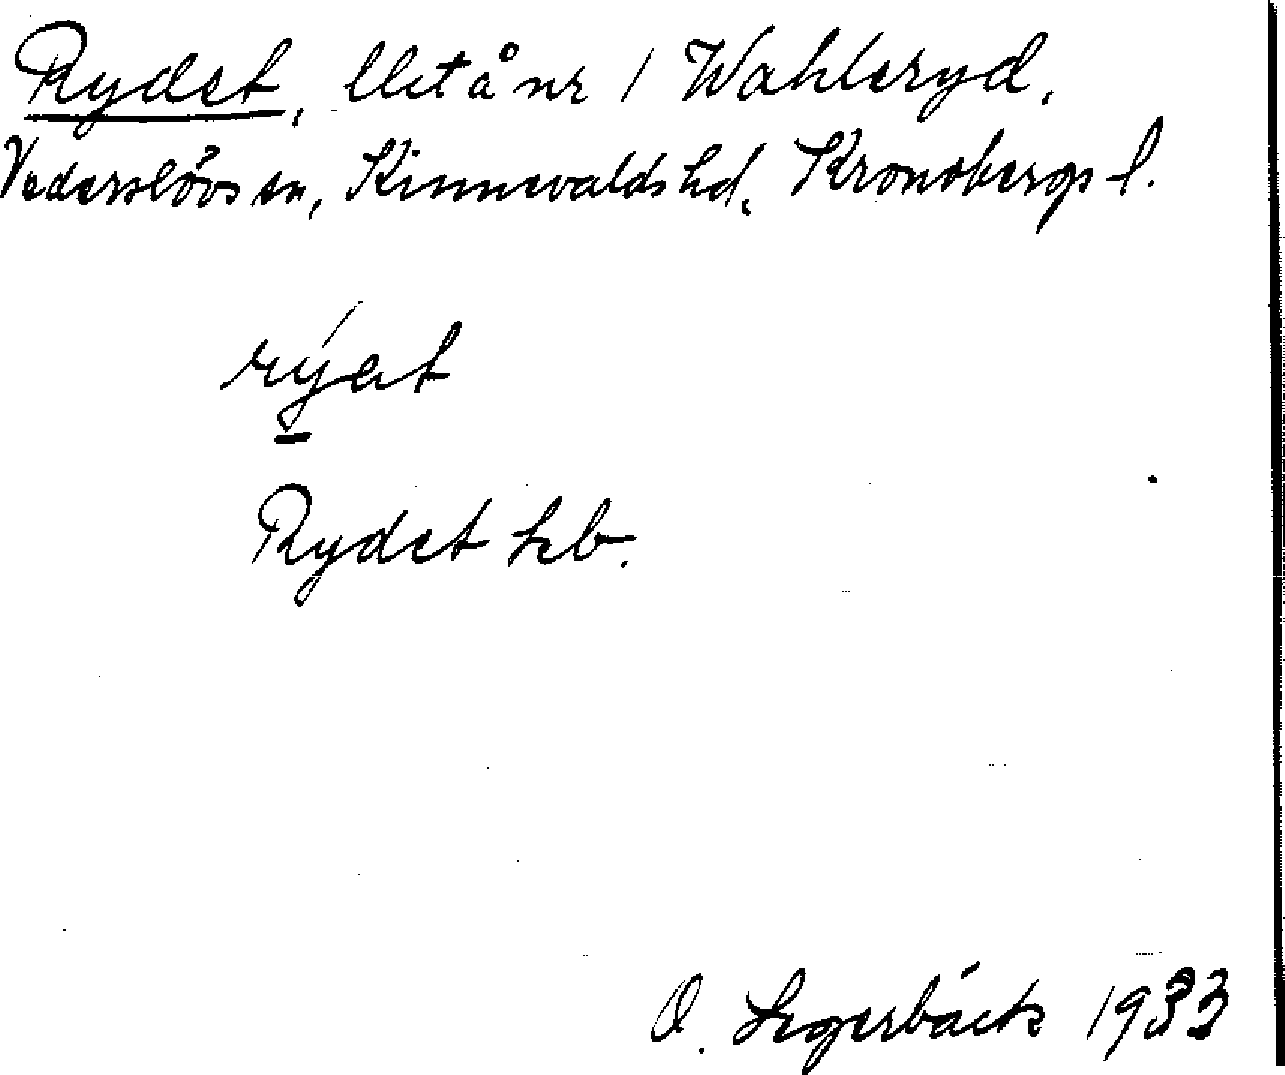 Rydet, llet å nr 1 Wahleryd,
Vederslövs sn, Kinnevalds hd, Kronobergs l.
rýat
Rydet hb.
O. Segerbäck 1933